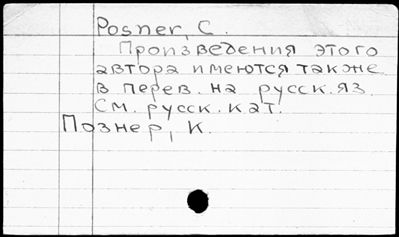 Posner, C.
Произведения этого
автора имеются также
в перев. на русск. яз.
См. русск. кат.
Познер, К.